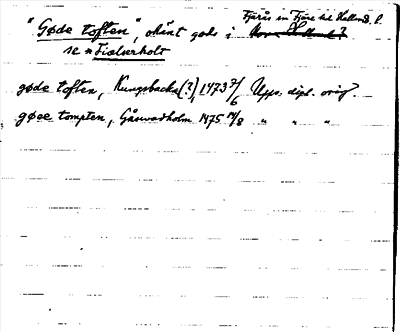 "Gøde toften", okänt gods i Fjärås sn Fjäre hd Halland. l.
se *Tiolserholt
gøde toften, Kungsbacka (?), 1473 2/6 Upps. dipl. orig.
gøee tompten, Gåsevadholm 1475 14/8 " " "